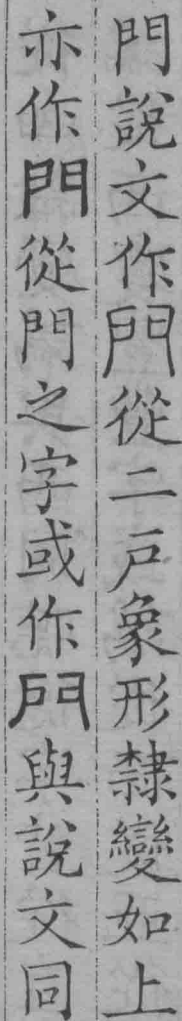 門說文作門從二戶象形隸變如上
亦作門從門之字或作門與說文同